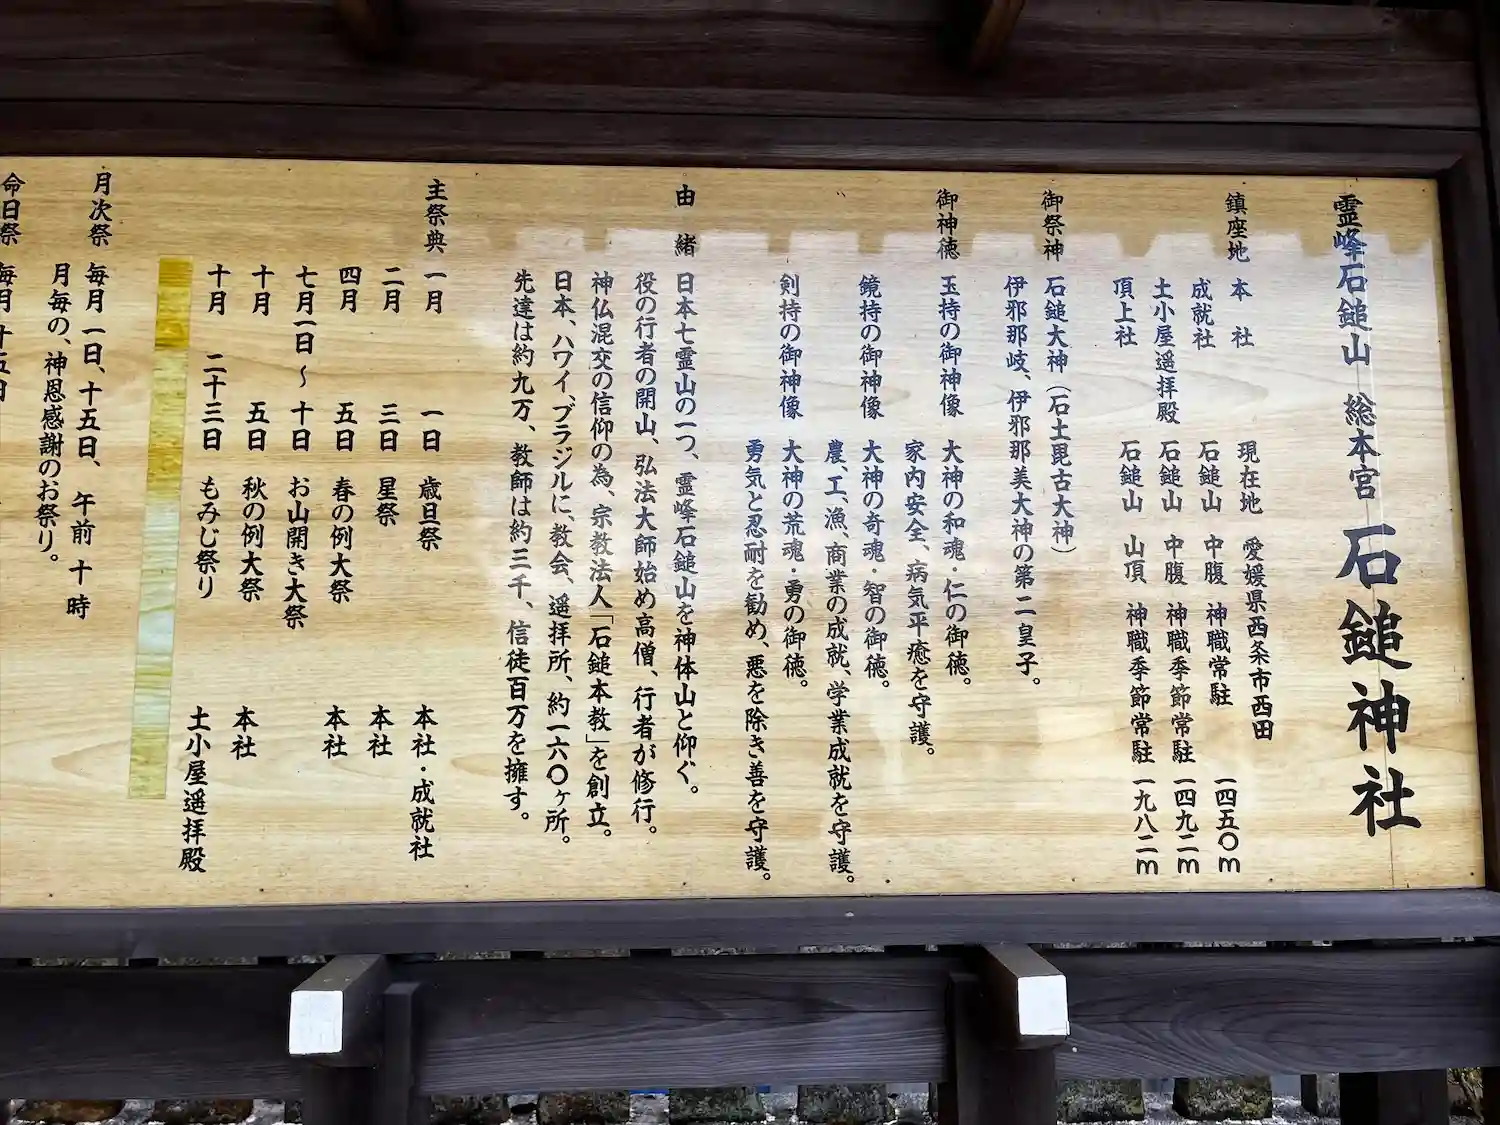 霊峰石鎚山 総本宮 石鎚神社
鎮座地 本社 現在地 愛媛県西条市西田
成就社 石鎚山 中腹 神職常駐 一四五〇m
土小屋遥拝殿 石鎚山 中腹 神職季節常駐 一四九二m
頂上社 石鎚山 山頂 神職季節常駐 一九八二m
御祭神 石鎚大神（石土毘古大神）
伊邪那岐、伊邪那美大神の第二皇子。
御神徳 玉持の御神像 大神の和魂・仁の御徳。
家内安全、病気平癒を守護。
鏡持の御神像 大神の奇魂・智の御徳。
農、工、漁、商業の成就、学業成就を守護。
剣持の御神像 大神の荒魂・勇の御徳。
勇気と忍耐を勧め、悪を除き善を守護。
由緒 日本七霊山の一つ、霊峰石鎚山を神体山と仰ぐ。
役の行者の開山、弘法大師始め高僧、行者が修行。
神仏混交の信仰の為、宗教法人「石鎚本教」を創立。
日本、ハワイ、ブラジルに、教会、遥拝所、約一六〇ヶ所。
先達は約九万、教師は約三千、信徒百万を擁す。
主祭典 一月 一日 歳旦祭 本社・成就社
二月 三日 星祭 本社
四月 五日 春の例大祭 本社
七月一日～十日 お山開き大祭
十月 五日 秋の例大祭 本社
十月 二十三日 もみじ祭り 土小屋遥拝殿
月次祭 毎月一日、十五日、午前十時
月毎の、神恩感謝のお祭り。
命日祭 毎月十五日